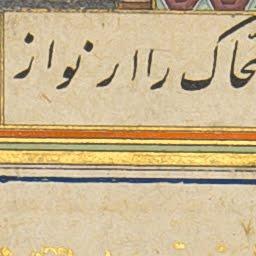 ضحاک را ارنواز